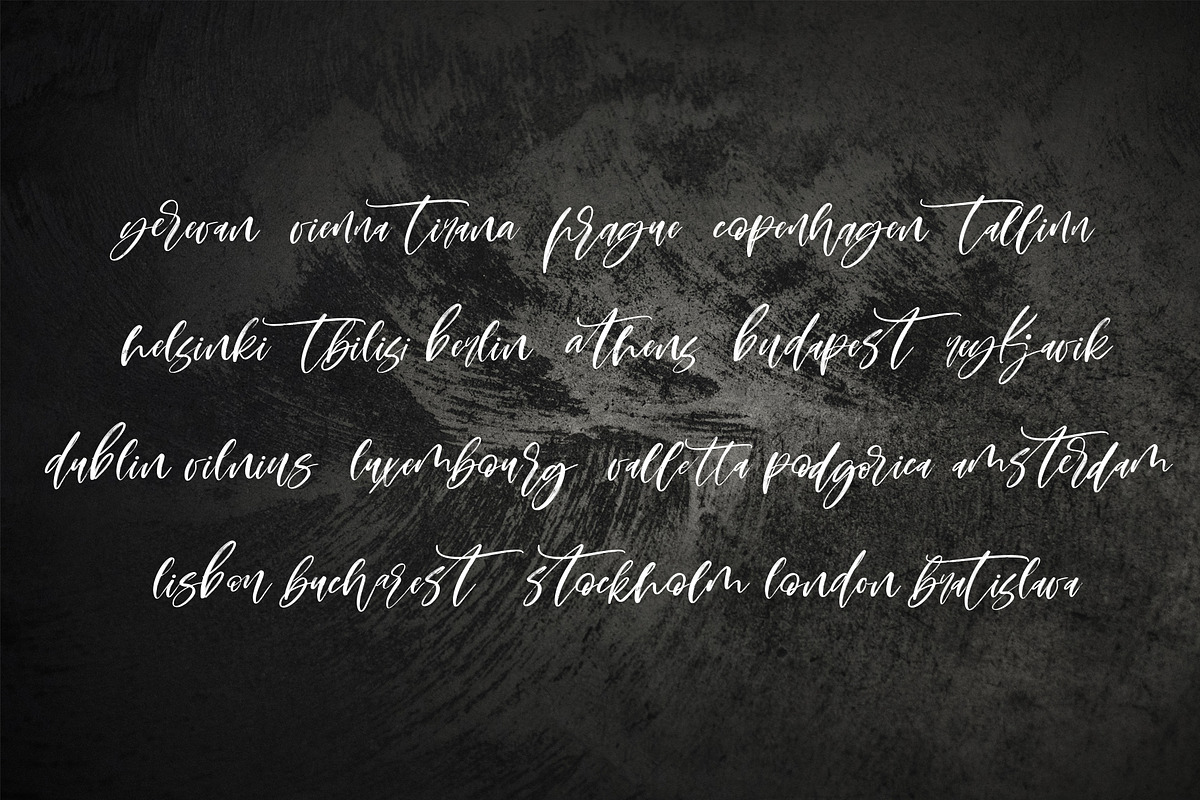 yerevan vienna tirana prague copenhagen tallinn
helsinki tbilisi berlin athens budapest reykjavik
dublin vilnius luxembourg valletta podgorica amsterdam
lisbon bucharest stockholm london bratislava